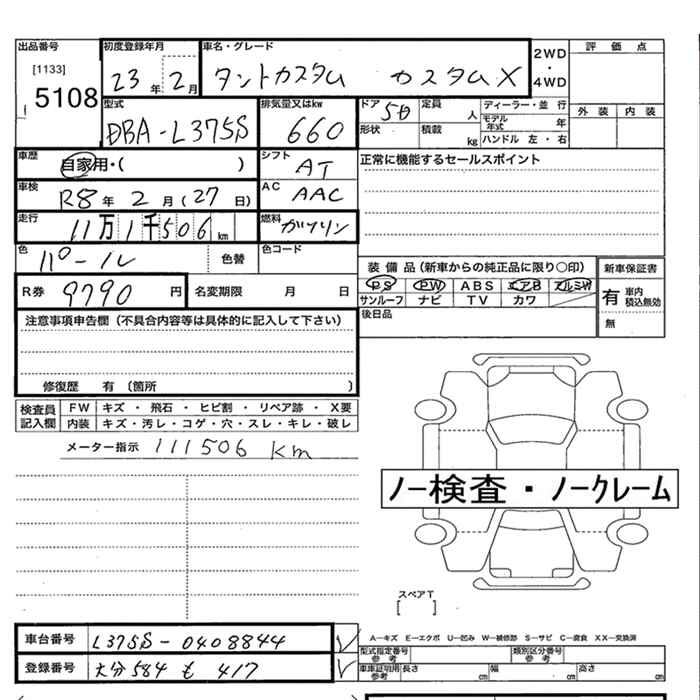 出品番号 初度登録年月 車名・グレード 2WD・4WD 評価点
[1133] 5108 23年2月 タントカスタム カスタムX 外装 内装
型式 排気量又はkw ドア 定員 ディーラー・並行
DBA-L375S 660 5D 人 モデル年式 年
形状 積載 kg ハンドル 左・右
車歴 自家用・( ) シフト AT 正常に機能するセールスポイント
車検 R8年2月(27日) AC AAC
走行 11万1千506km 燃料 ガソリン
色 パール 色替 色コード
装備品(新車からの純正品に限り○印) 新車保証書
R券 9790円 名変期限 月 日 PS PW ABS エアB アルミW 有 車内積込無効
サンルーフ ナビ TV カワ 無
注意事項申告欄(不具合内容等は具体的に記入して下さい) 後日品
修復歴 有 〔箇所 〕
検査員記入欄 FW キズ・飛石・ヒビ割・リペア跡・X要
内装 キズ・汚レ・コゲ・穴・スレ・キレ・破レ
メーター指示 111506 km
ノー検査・ノークレーム
スペアT
[ ]
車台番号 L375S-0408844 A-キズ E-エクボ U-凹み W-補修部 S-サビ C-腐食 XX-交換済
型式指定番号 参考 類別区分番号 参考
登録番号 大分584 も 417 車庫証明用参考 長さ cm 幅 cm 高さ cm